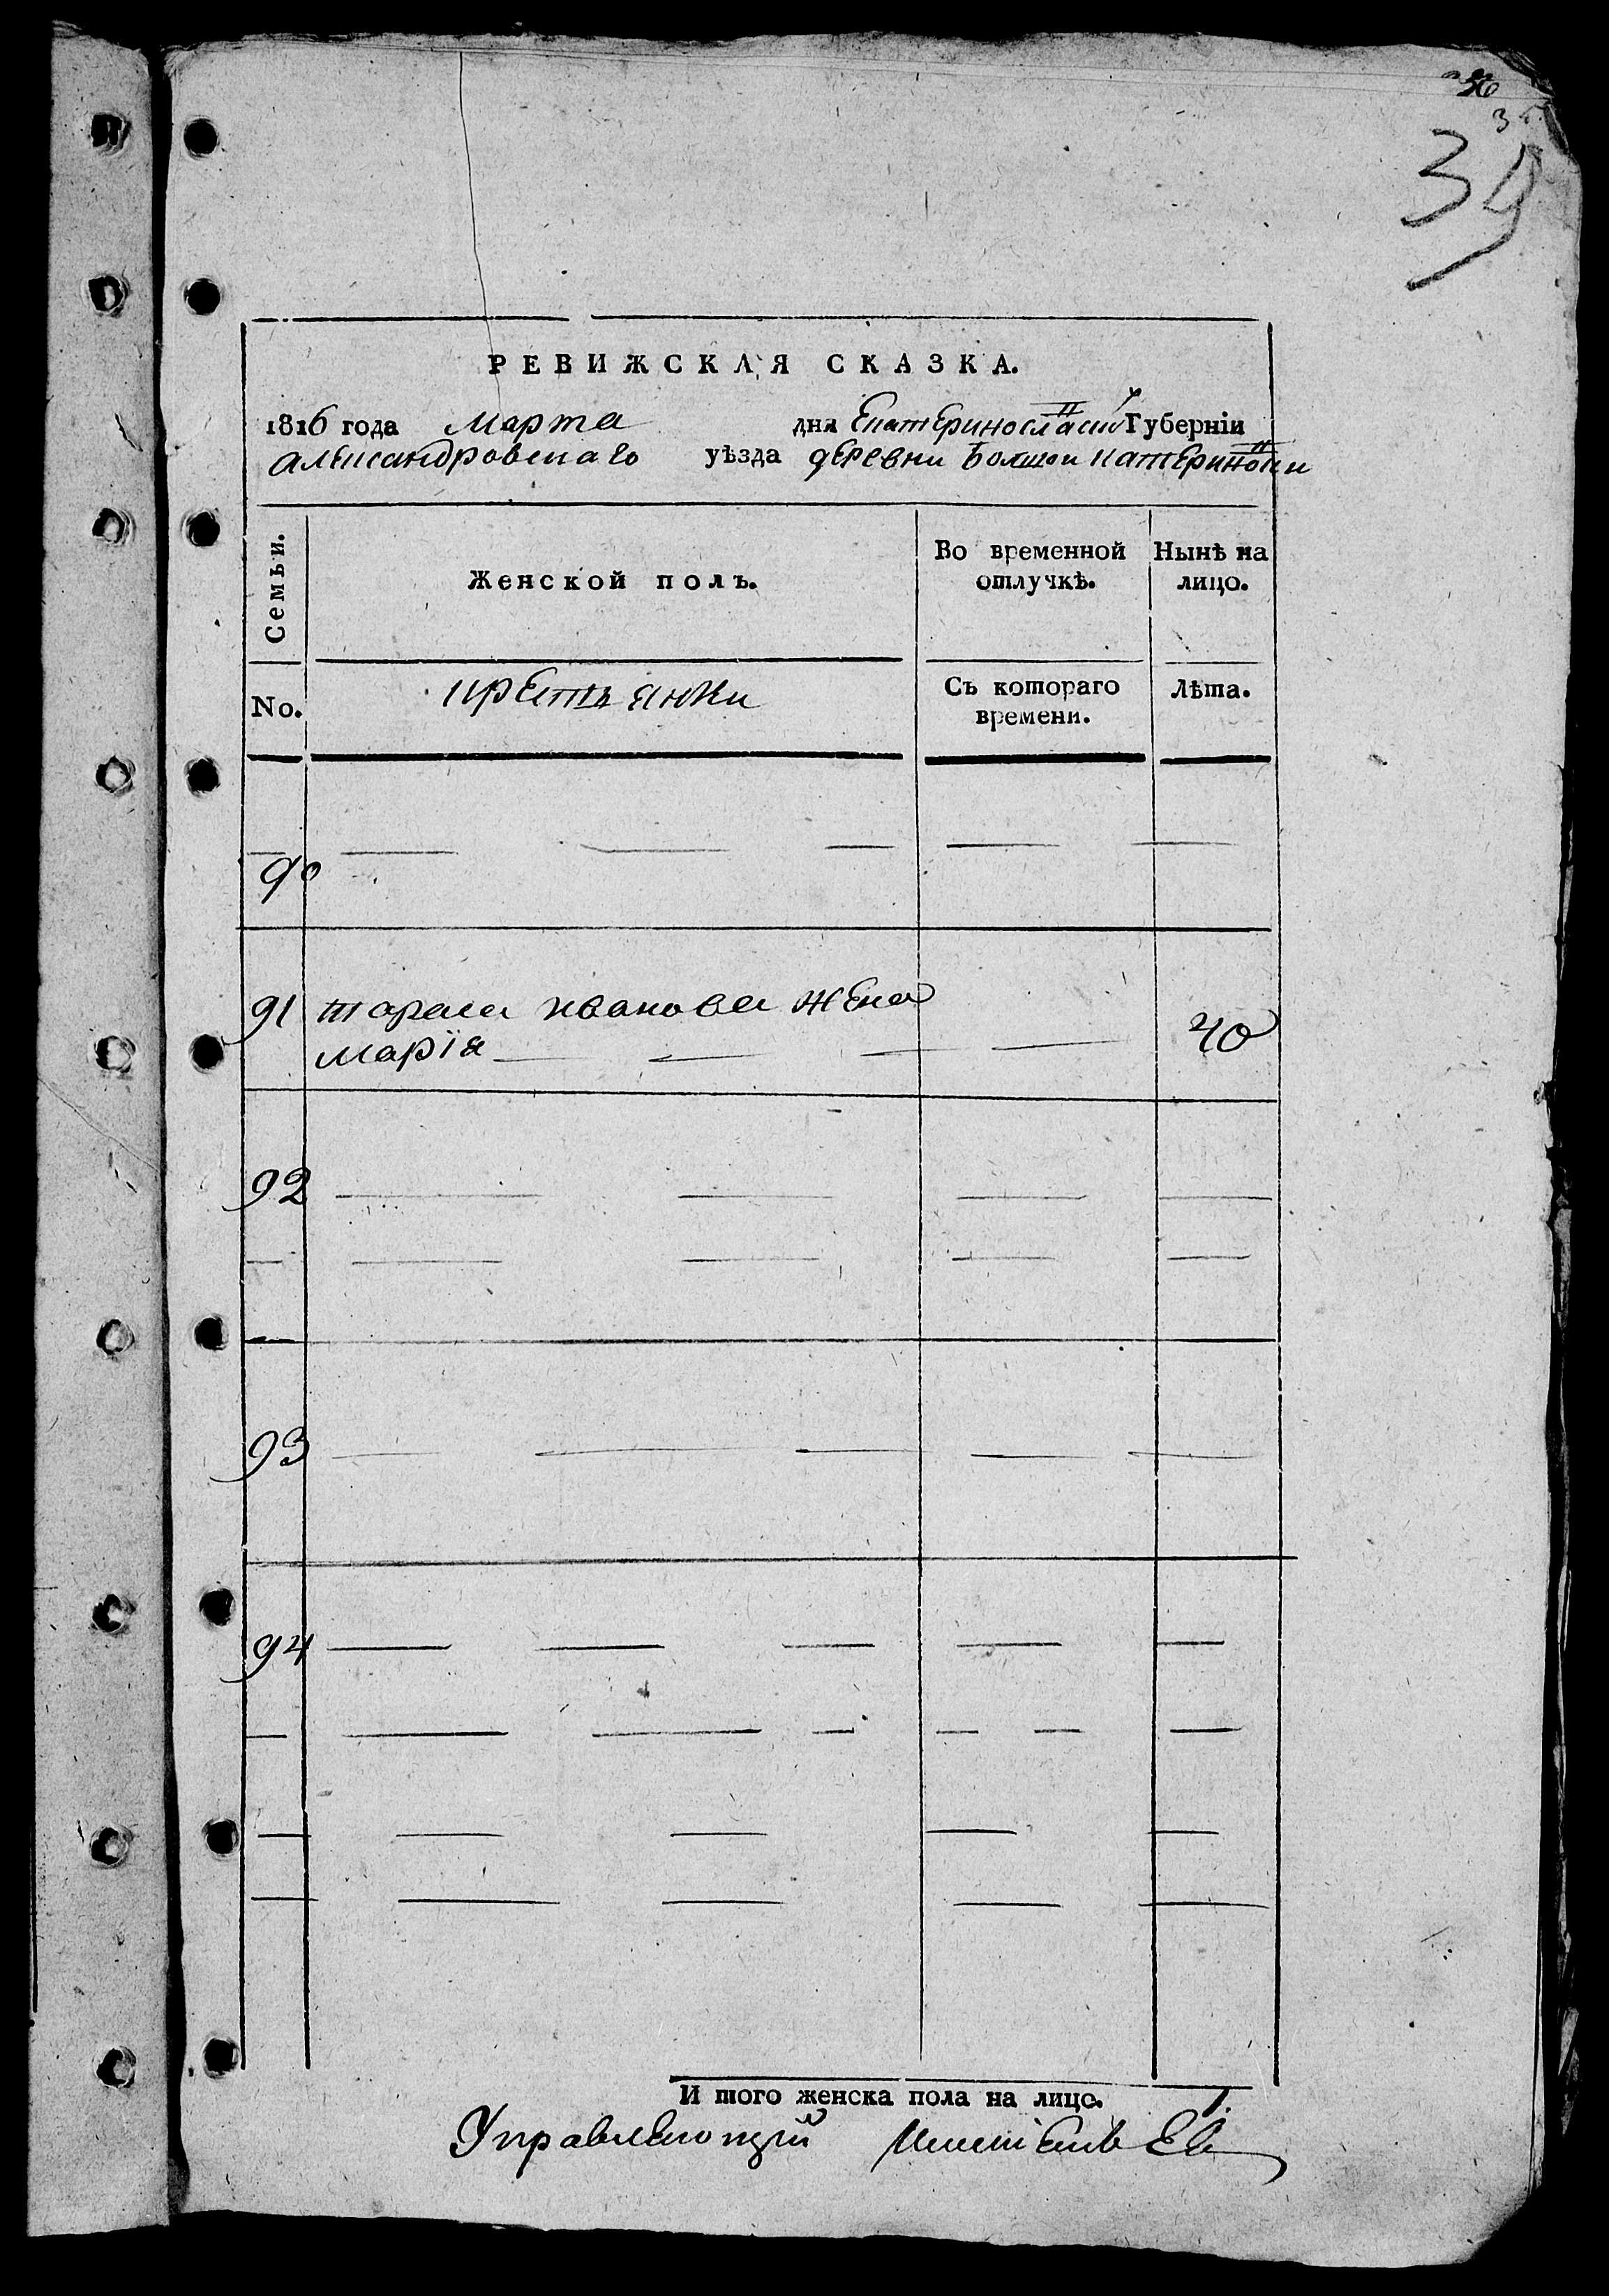 39
РЕВИЖСКАЯ СКАЗКА.
1816 года марта дня Екатеринославской Губерніи
александровскаго уѣзда деревни Болшои катериновки
Семьи. Женской полъ. Во временной отлучкѣ. Нынѣ на лицо.
No. крестьянки Съ котораго времени. Лѣта.
90
91 тараса иванова жена
марія 40
92
93
94
И того женска пола на лицо. 1.
Управляющій